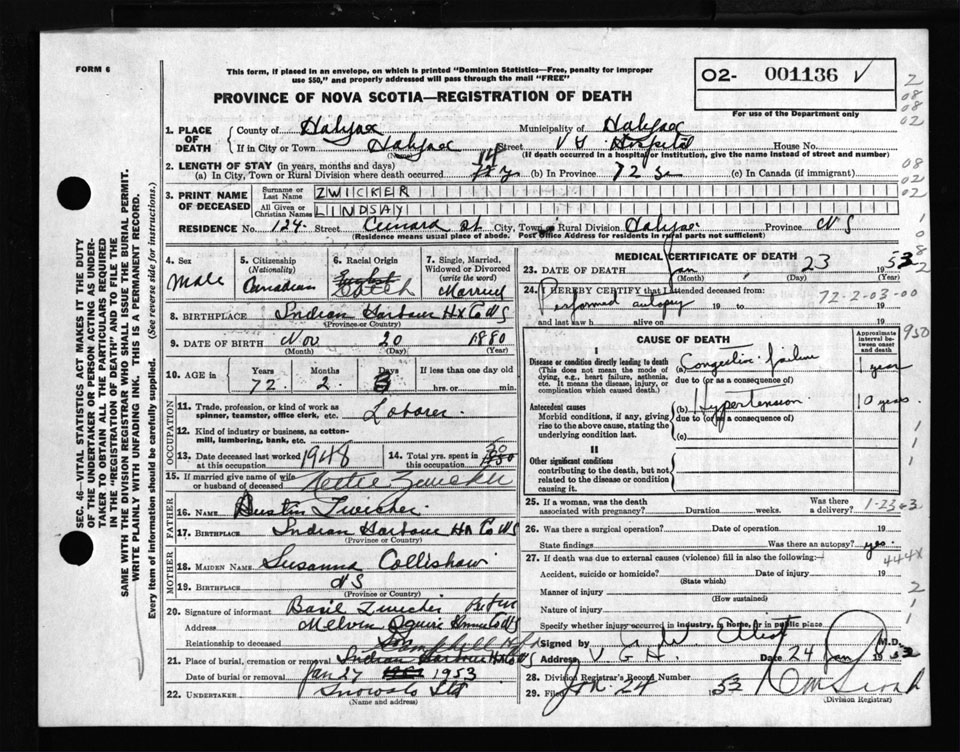 FORM 6
This form, if placed in an envelope, on which is printed "Dominion Statistics—Free, penalty for improper
use $50," and properly addressed will pass through the mail "FREE"
O2- 001136 ✓
For use of the Department only
PROVINCE OF NOVA SCOTIA—REGISTRATION OF DEATH
2
08
08
02
1. PLACE OF DEATH { County of Halifax Municipality of Halifax
If in City or Town Halifax Street VG Hospital House No.
(Name) (If death occurred in a hospital or institution, give the name instead of street and number)
2. LENGTH OF STAY (in years, months and days)
(a) In City, Town or Rural Division where death occurred 14 (b) In Province 72 (c) In Canada (if immigrant)
08
02
02
3. PRINT NAME OF DECEASED { Surname or Last Name ZWICKER
All Given or Christian Names LINDSAY
RESIDENCE No. 124 Street Cunard St City, Town or Rural Division Halifax Province NS
(Residence means usual place of abode. Post Office Address for residents in rural parts not sufficient)
4. Sex
Male
5. Citizenship
(Nationality)
Canadian
6. Racial Origin
7. Single, Married,
Widowed or Divorced
(write the word)
Married
8. BIRTHPLACE Indian Harbour Hx Co NS
(Province or Country)
9. DATE OF BIRTH Nov 20 1880
(Month) (Day) (Year)
10. AGE in { Years Months Days If less than one day old
72 2 3 hrs. or min.
OCCUPATION
11. Trade, profession, or kind of work as
spinner, teamster, office clerk, etc. Laborer
12. Kind of industry or business, as cotton-
mill, lumbering, bank, etc.
13. Date deceased last worked
at this occupation 1948
14. Total yrs. spent in
this occupation 30
15. If married give name of wife
or husband of deceased Nettie Zwicker
FATHER
16. NAME Dustin Zwicker
17. BIRTHPLACE Indian Harbour Hx Co NS
(Province or Country)
MOTHER
18. MAIDEN NAME Susanna Collishaw
19. BIRTHPLACE NS
(Province or Country)
20. Signature of informant Basil Zwicker
Address Melvin Square Co NS
Relationship to deceased Son
21. Place of burial, cremation or removal Indian Harbour Hx Co NS
Date of burial or removal Jan 27 1953
22. UNDERTAKER Snows Ltd
(Name and address)
MEDICAL CERTIFICATE OF DEATH
23. DATE OF DEATH Jan 23 1953
(Month) (Day) (Year)
24. I HEREBY CERTIFY that I attended deceased from:
Performed autopsy 19 to 19
72-2-03-00
and last saw h alive on 19
CAUSE OF DEATH
Approximate
interval be-
tween onset
and death
930
I
Disease or condition directly leading to death
(This does not mean the mode of
dying, e.g., heart failure, asthenia,
etc. It means the disease, injury, or
complication which caused death.)
(a) Congestive failure 1 year
due to (or as a consequence of)
Antecedent causes
Morbid conditions, if any, giving
rise to the above cause, stating the
underlying condition last.
(b) Hypertension 10 years
due to (or as a consequence of)
(c)
II
Other significant conditions
contributing to the death, but not
related to the disease or condition
causing it.
25. If a woman, was the death
associated with pregnancy? Duration weeks. Was there
a delivery?
1-23-3
26. Was there a surgical operation? Date of operation 19
State findings Was there an autopsy? yes.
444X
27. If death was due to external causes (violence) fill in also the following:—
Accident, suicide or homicide? Date of injury 19
(State which)
Manner of injury
(How sustained)
Nature of injury
Specify whether injury occurred in industry, in home, or in public place
Signed by M.D.
Address V G H. Date 24 Jan 1953
28. Division Registrar's Record Number
29. Filed Jan. 24 1953
(Division Registrar)
SEC. 46—VITAL STATISTICS ACT MAKES IT THE DUTY
OF THE UNDERTAKER OR PERSON ACTING AS UNDER-
TAKER TO OBTAIN ALL THE PARTICULARS REQUIRED
IN THE "REGISTRATION OF DEATH" AND TO FILE THE
SAME WITH THE DIVISION REGISTRAR WHO SHALL ISSUE THE BURIAL PERMIT.
WRITE PLAINLY WITH UNFADING INK. THIS IS A PERMANENT RECORD.
Every item of information should be carefully supplied. (See reverse side for instructions.)